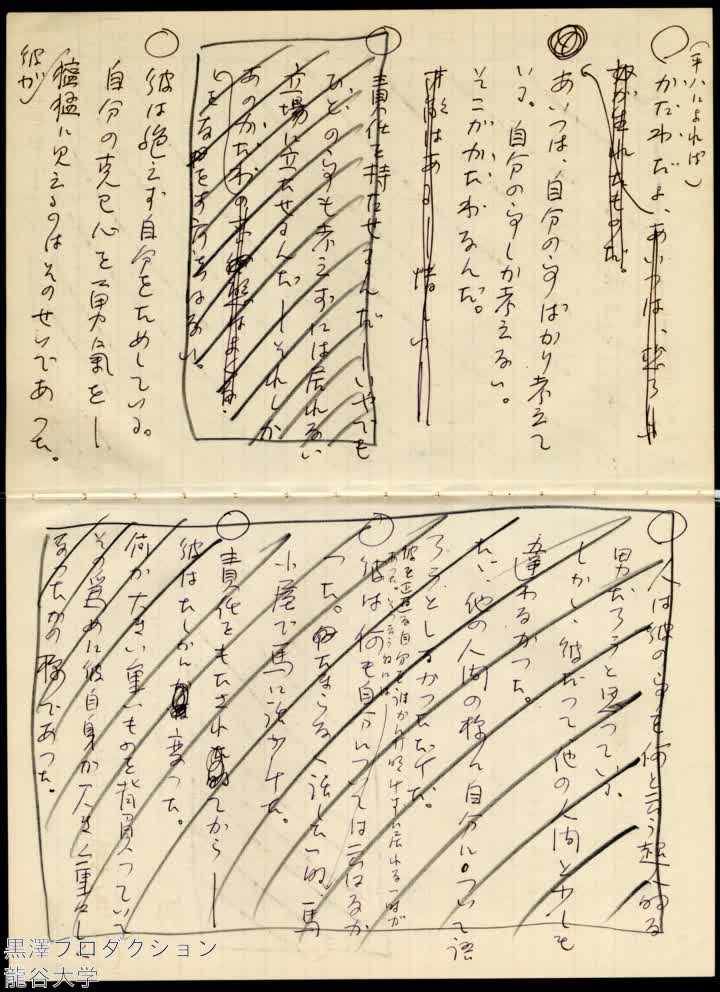 (平八によれば)
かたわだよ、あいつは、
奴が生れたものだ。
あいつは、自分の事ばかり考えて
いる。自分の事しか考えない。
そこがかたわなんだ。
責任を持たせるんだ—いやでも
ひとの事も考えずには居れない
立場に立たせるんだ—それしか
あのかたわの
彼は絶えず自分をためしている。
自分の克己心を勇気を—
彼が
獰猛に見えるのはそのせいであつた。
人は彼の事を何と云う超人的な
男だろうと思つている。
しかし、彼だつて他の人間と少しも
違わなかつた。
たゞ、他の人間の様に自分について語
ろうとしなかつただけだ。
彼は何も自分については云はなか
つた。たまらなく話したい時、馬
小屋で馬に話かけた。
責任をもたされてから—
彼はたしかに変つた。
何か大きい重いものを背負つていて
その為めに彼自身が大きく重々しく
なつたかの様であつた。
黒澤プロダクション
龍谷大学